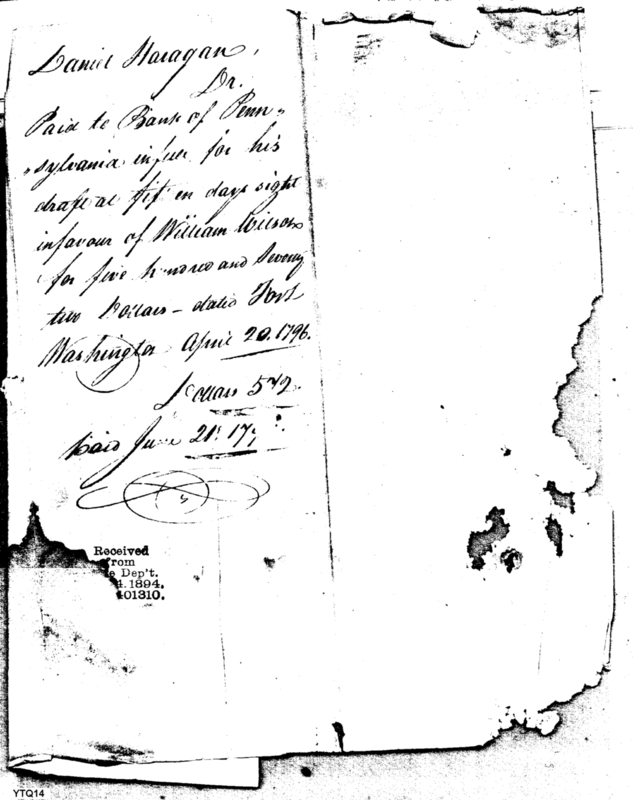 Daniel Haragan,
Dr.
Paid to Bank of Penn„
„sylvania in full for his
draft at fifteen days sight
in favour of William Wilson
for five hundred and seventy
two Dollars – dated Fort
Washington April 20. 1796.
Dollars 572
Paid June 21st 179
Received
from
Dep't.
1894.
401310.
YTQ14